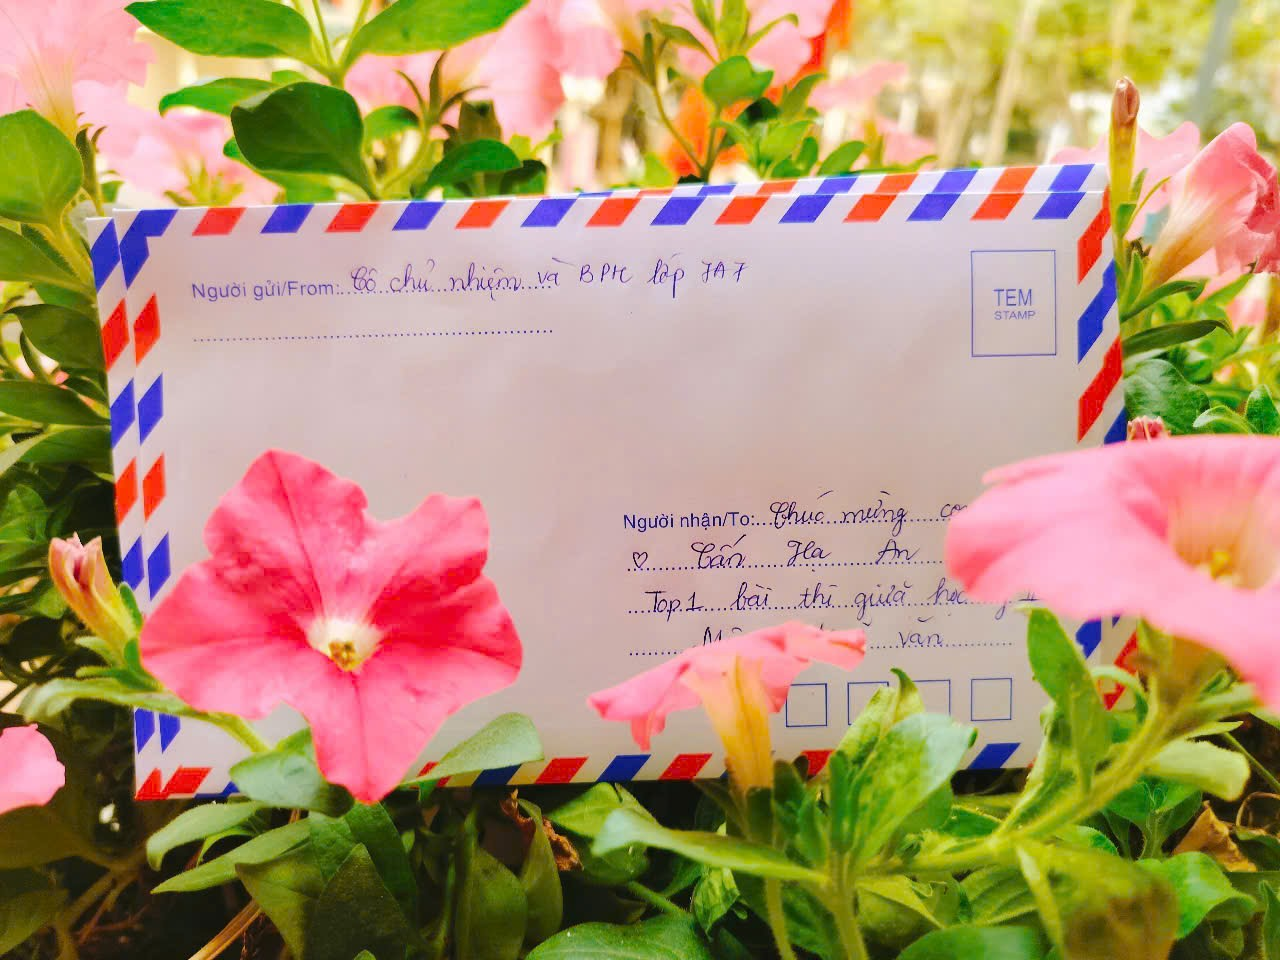 Người gửi/From: Cô chủ nhiệm và BPH lớp 7A7
TEM
STAMP
Người nhận/To: Chúc mừng
♡ Tấn Hạ An
Top 1 bài thi giữa
văn